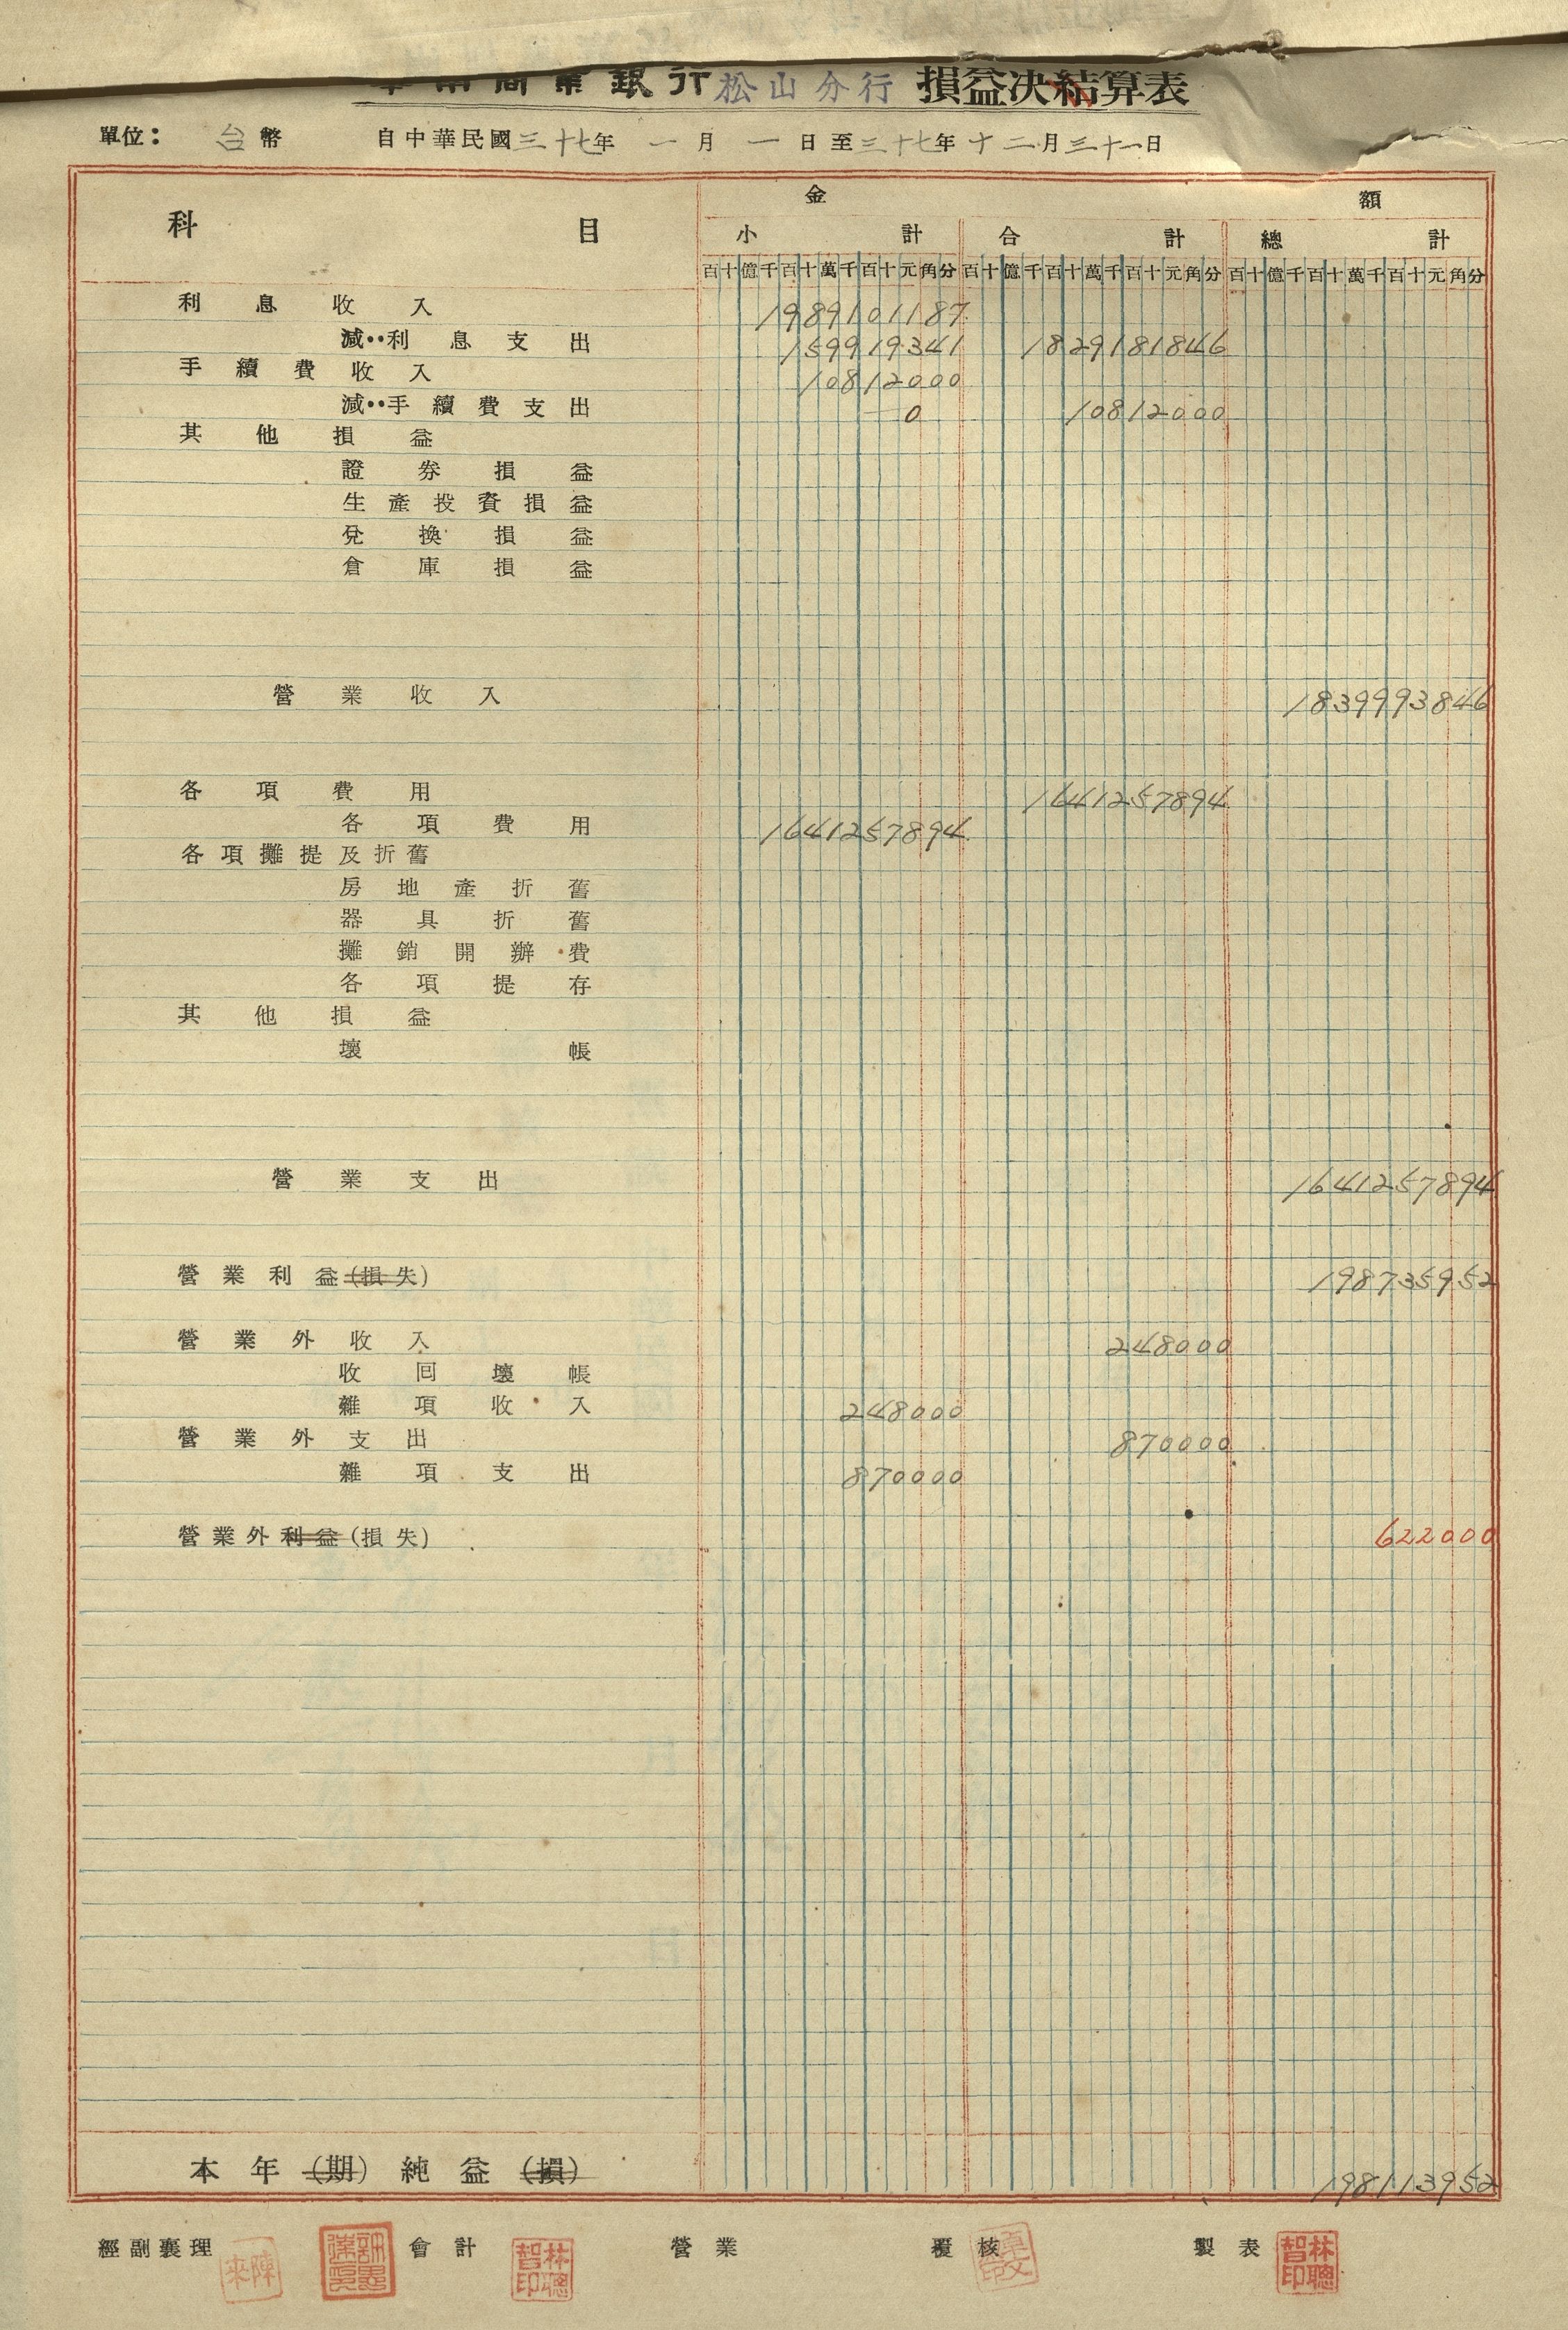 商業銀行松山分行 損益決結算表
單位： 台幣 自中華民國三十七年 一月 一日至三十七年十二月三十一日
科目 金額
小計 合計 總計
百十億千百十萬千百十元角分 百十億千百十萬千百十元角分 百十億千百十萬千百十元角分
利息收入 1989101187
減：利息支出 159919341 1829181846
手續費收入 10812000
減：手續費支出 0 10812000
其他損益
證券損益
生產投資損益
兌換損益
倉庫損益
營業收入 1839993846
各項費用 1641257894
各項費用 1641257894
各項攤提及折舊
房地產折舊
器具折舊
攤銷開辦費
各項提存
其他損益
壞帳
營業支出 1641257894
營業利益(損失) 198735952
營業外收入 248000
收回壞帳
雜項收入 248000
營業外支出 870000
雜項支出 870000
營業外利益(損失) 622000
本年(期)純益(損) 198113952
經副襄理 陳來 會計 林聰智印 營業 覆核 製表 林聰智印